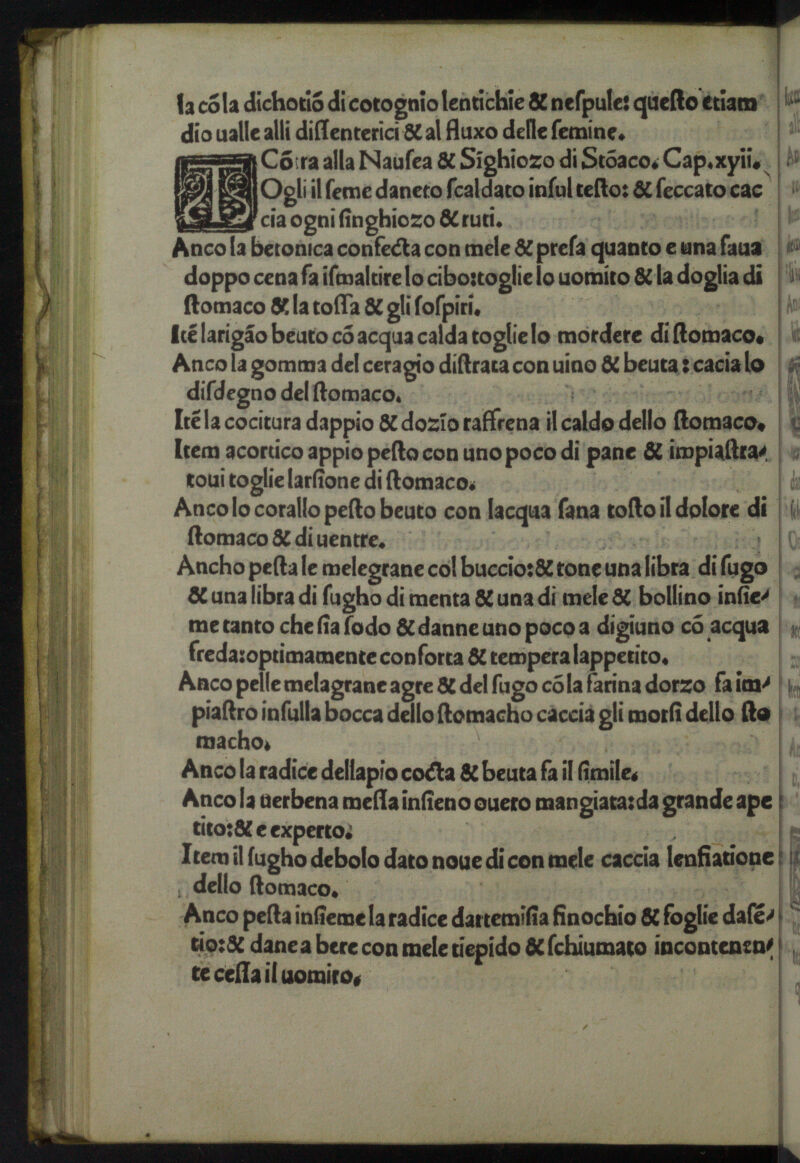 la cóla dichotió di cotognio lentichie & nespule: questo etiam
dio ualle alli dissenterici & al fluxo delle femine.
Cótra alla Nausea & Síghiozo di Stóaco. Cap.xyii.
TOgli il seme daneto scaldato insul testo: & seccato cac
cia ogni singhiozo & ruti.
Anco la betonica confecta con mele & presa quanto e una faua
doppo cena fa ismaltire lo cibo:toglie lo uomito & la doglia di
stomaco & la tossa & gli sospiri.
Ité larigáo beuto có acqua calda toglie lo mordere di stomaco.
Anco la gomma del ceragio distrata con uino & beuta: cacia lo
disdegno del stomaco.
Ité la cocitura dappio & dozío raffrena il caldo dello stomaco.
Item acortico appio pesto con uno poco di pane & impiastra-
toui toglie larsione di stomaco.
Anco lo corallo pesto beuto con lacqua sana tosto il dolore di
stomaco & di uentre.
Ancho pesta le melegrane col buccio:& tone una libra di sugo
& una libra di sugho di menta & una di mele & bollino insie-
me tanto che sia sodo & danne uno poco a digiuno có acqua
freda:optimamente conforta & tempera lappetito.
Anco pelle melagrane agre & del sugo có la farina dorzo fa im-
piastro insulla bocca dello stomacho caccia gli morsi dello sto
macho.
Anco la radice dellapio cocta & beuta fa il simile.
Anco la uerbena messa insieno ouero mangiata:da grande ape
tito:& e experto.
Item il sugho debolo dato noue di con mele caccia lenfiatione
dello stomaco.
Anco pesta insieme la radice dartemisia finochio & foglie dasé-
tio:& dane a bere con mele tiepido & schiumato incontenen-
te cessa il uomito.